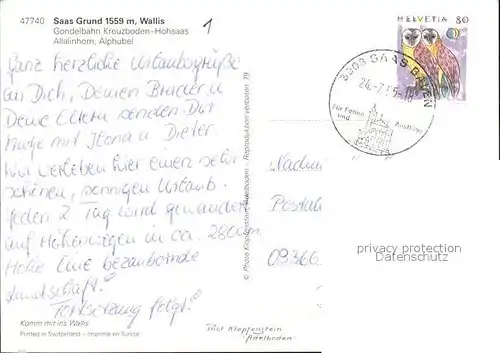 47740 Saas Grund 1559 m, Wallis
Gondelbahn Kreuzboden-Hohsaas
Allalinhorn, Alphubel
1
HELVETIA 80
Ganz herzliche Urlaubsgrüße
an Dich, Deinen Bruder u.
Deine Eltern senden Dir
Antje mit Ilona u Dieter.
Wir verleben hier einen sehr
schönen, sonnigen Urlaub.
Jeden 2 Tag wird gewandert
auf Höhenwegen in ca. 2800m
Höhe. Eine bezaubernde
Landschaft!
Fortsetzung folgt!
SAAS BALEN
Für Ferien
und
Ausflüge
© Photo Klopfenstein Adelboden - Reproduktion verboten 19
Nadin
Postah
09366
privacy protection
Datenschutz
Komm mit ins Wallis
Printed in Switzerland - Imprimé en Suisse
Phot Klopfenstein
Adelboden